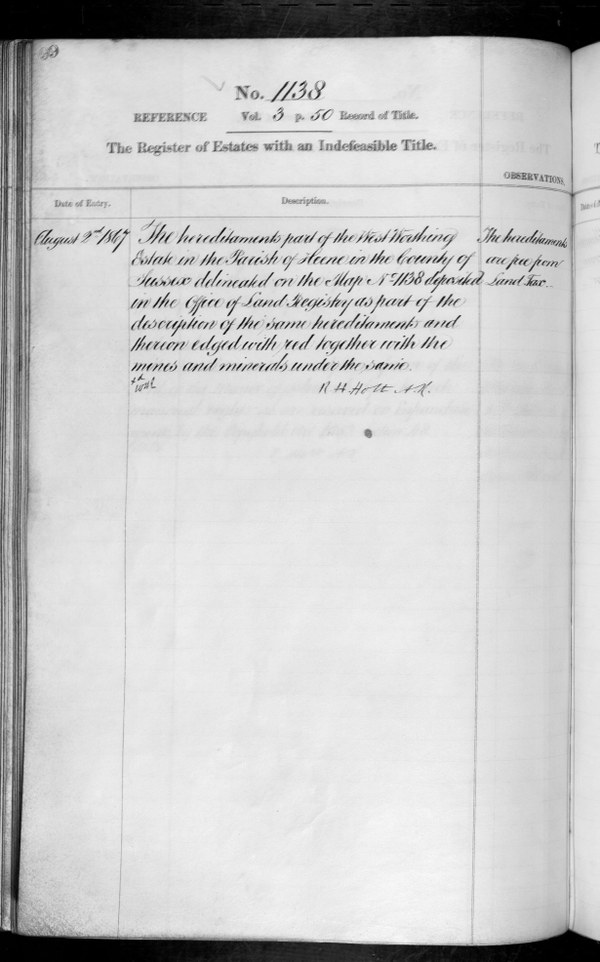 No. 1138
REFERENCE Vol. 3 p. 50 Record of Title.
The Register of Estates with an Indefeasible Title.
OBSERVATIONS.
Date of Entry.
Description.
August 2nd 1867
The hereditaments part of the West Worthing
Estate in the Parish of Heene in the County of
Sussex delineated on the Map No 1138 deposited
in the Office of Land Registry as part of the
description of the same hereditaments and
thereon edged with red together with the
mines and minerals under the same.
R H Holt A.R.
The hereditaments
are free from
Land Tax.